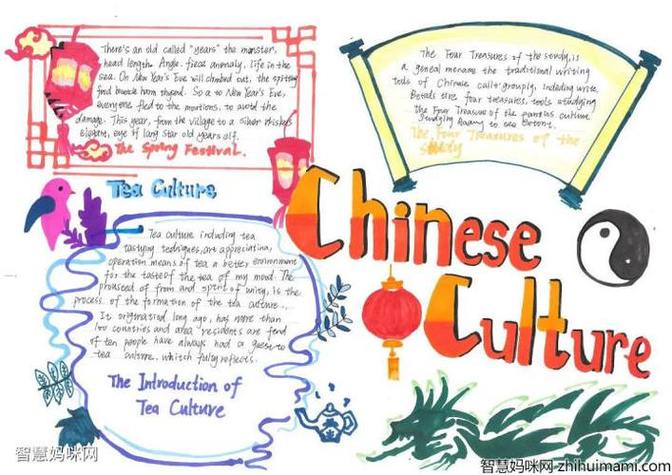 There's an old called "years" the monster,
head length Angle, fiece anomaly, life in the
sea. On New Year's Eve will climbed out, the
find livestock from So a to New Year's Eve,
everyone fled to the mountions, to avoid the
damage. This year, from the village to a silver
elegant, eye if long star old years off.
The Spring Festival.
The Four Treasures of the study, is
a geneal mename the traditional writing
tools of Chinese calligraphy, including write,
four treasures, tools studying
the Four Treasure of the culture
The four Treasures of the
study
Tea Culture
Tea culture including tea
tasting are appreciation,
operation means of tea a better environment
for the taste of the tea of my mood. The
of from and spirit of unity, is the
process of the formation of the tea culture.
It originated long ago, has more than
100 countries and area residents are fend
of tea people have always had a to
tea culture, which fully reflects.
The Introduction of
Tea Culture
Chinese
Culture
智慧妈咪网
智慧妈咪网-zhihuimami.com